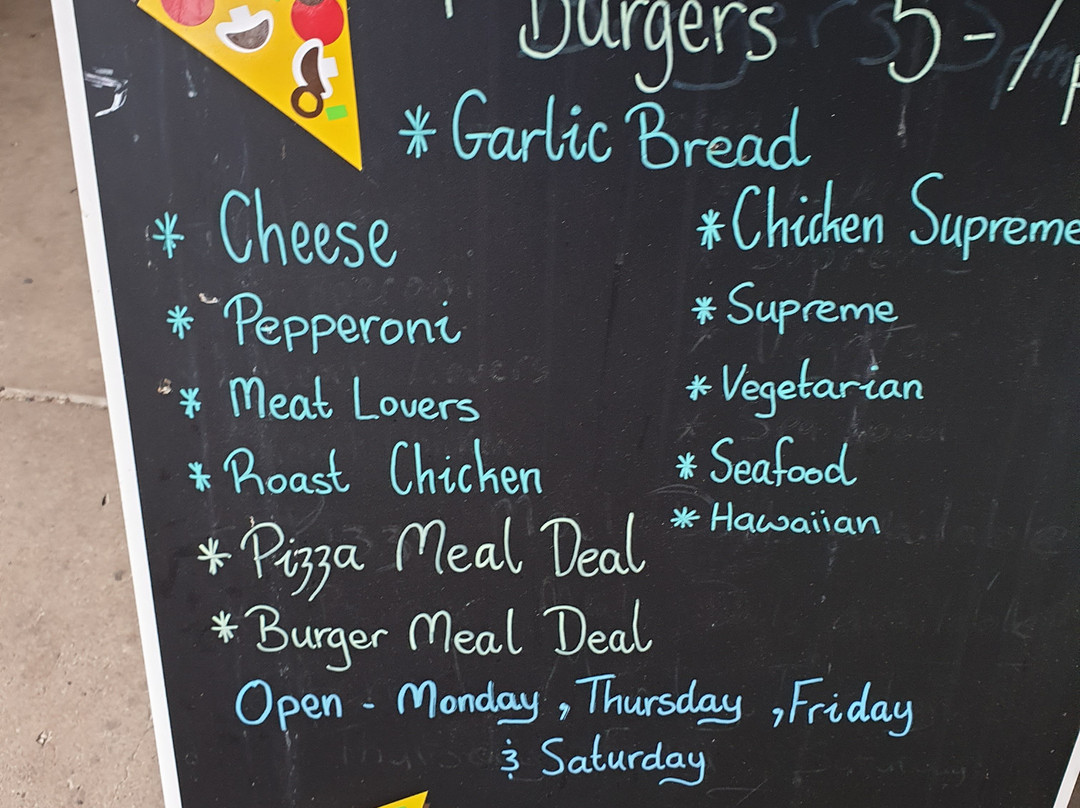 Burgers 5-/
* Garlic Bread
* Cheese
* Pepperoni
* Meat Lovers
* Roast Chicken
* Chicken Supreme
* Supreme
* Vegetarian
* Seafood
* Hawaiian
* Pizza Meal Deal
* Burger Meal Deal
Open - Monday, Thursday, Friday
& Saturday